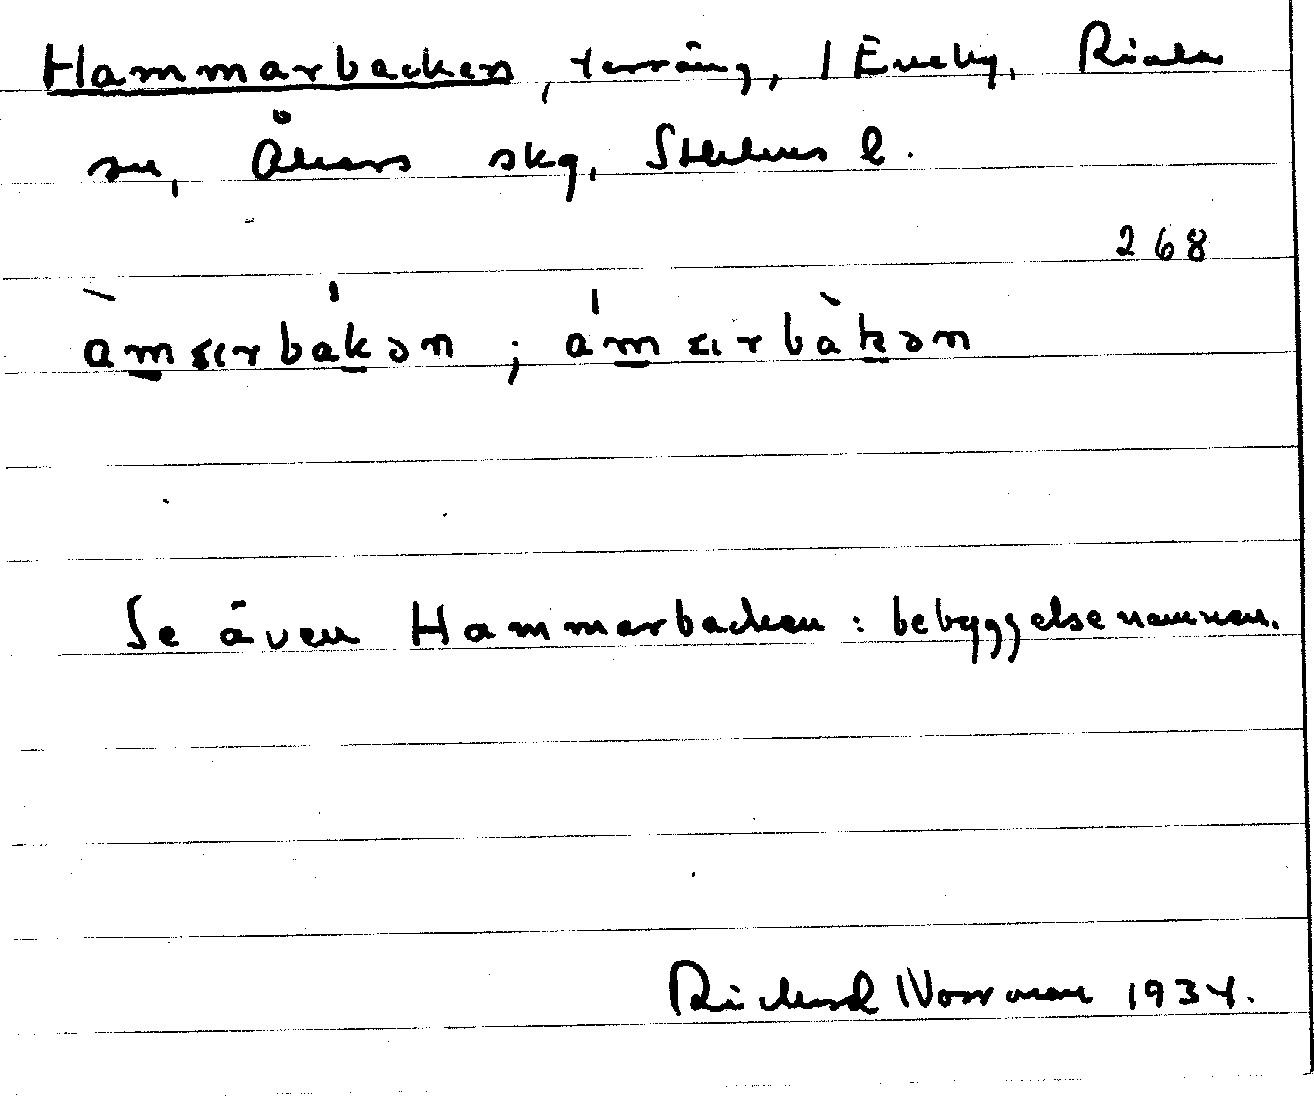 Hammarbacken, terräng, 1 Eneby, Riala
sn, Åkers skg, Sthlms l.
268
àmɛrbákən ; ámɛrbàkən
Se även Hammarbacken : bebyggelsenamnen.
Richard Norrman 1934.